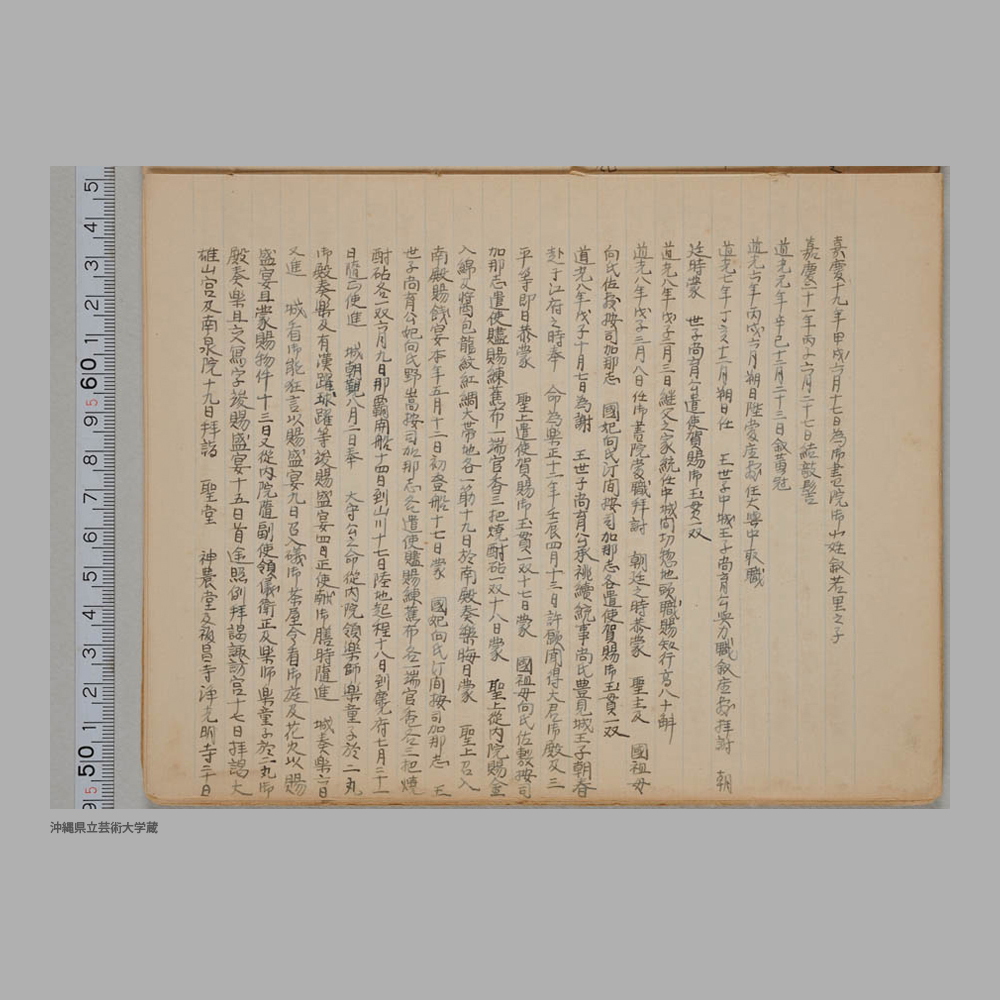 嘉慶十九年甲戌六月十七日為御書院御小姓叙若里之子
嘉慶二十一年丙子六月二十七日結敧髻
道光元年辛巳十二月二十三日叙黄冠
道光六年丙戌六月朔日陞當座敷任大與中取職
道光七年丁亥十二月朔日任 王世子中城王子尚育公與力職叙座敷拝謝 朝
廷時蒙 世子尚育公遣使賀賜御玉貫一双
道光八年戊子二月三日継父之家統任中城間切惣地頭職賜知行高八十斛
道光八年戊子三月八日任御書院當職拝謝 朝廷之時恭蒙 聖主及 國祖母
向氏佐敷按司加那志 國妃向氏汀間按司加那志各遣使賀賜御玉貫一双
道光八年戊子十月七日為謝 王世子尚育公承祧續統事尚氏豊見城王子朝春
赴于江府之時奉 命為楽正十二年壬辰四月十三日許願聞得大君御殿及三
平等即日恭蒙 聖上遣使賀賜御玉貫一双十七日蒙 國祖母向氏佐敷按司
加那志遣使贐賜練蕉布一端官香三把焼酎砧一双十八日蒙 聖上從内院賜金
入錦父 包龍紋紅綢大帯地各一筋十九日於南殿奏楽晦日蒙 聖上召入
南殿賜餞宴本年五月十二日初登船十七日蒙 國妃向氏汀間按司加那志 王
世子尚育公妃向氏野嵩按司加那志各遣使贐賜練蕉布各一端官香各三把焼
酎砧各一双六月九日那覇開船十四日到山川十七日陸地起程十八日到麑府七月二十一
日隨正使進 城朝覲八月一日奉 大守公之命從内院領楽師楽童子於二丸
御殿奏楽及有漢躍球躍等竣賜盛宴四日正使献御膳時隨進 城奏楽六日
又進 城看御能狂言以賜盛宴九日召入磯御茶屋令看御庭及花火以賜
盛宴且蒙賜物件十三日又從内院隨副使領儀衛正及楽師楽童子於二丸御
殿奏楽且交 席字竣賜盛宴十五日首途照例拝謁諏訪宮十七日拝謁大
雄山宮及南泉院十九日拝謁 聖堂 神農堂及福昌寺浄光明寺二十日
5 4 3 2 1 60 9 8 7 6 5 4 3 2 1 50 9
沖縄県立芸術大学蔵